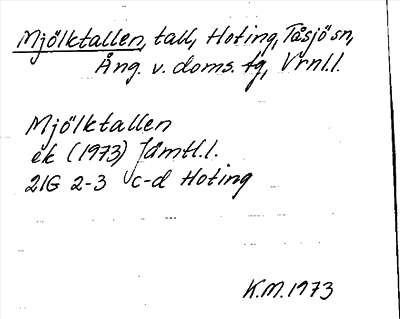 Mjölktallen, tall, Hoting, Tåsjö sn,
Ång. v. doms. fg, Vrnl.l.
Mjölktallen
ek (1973) Jämtl.l.
21G 2-3 c-d Hoting
K.M. 1973